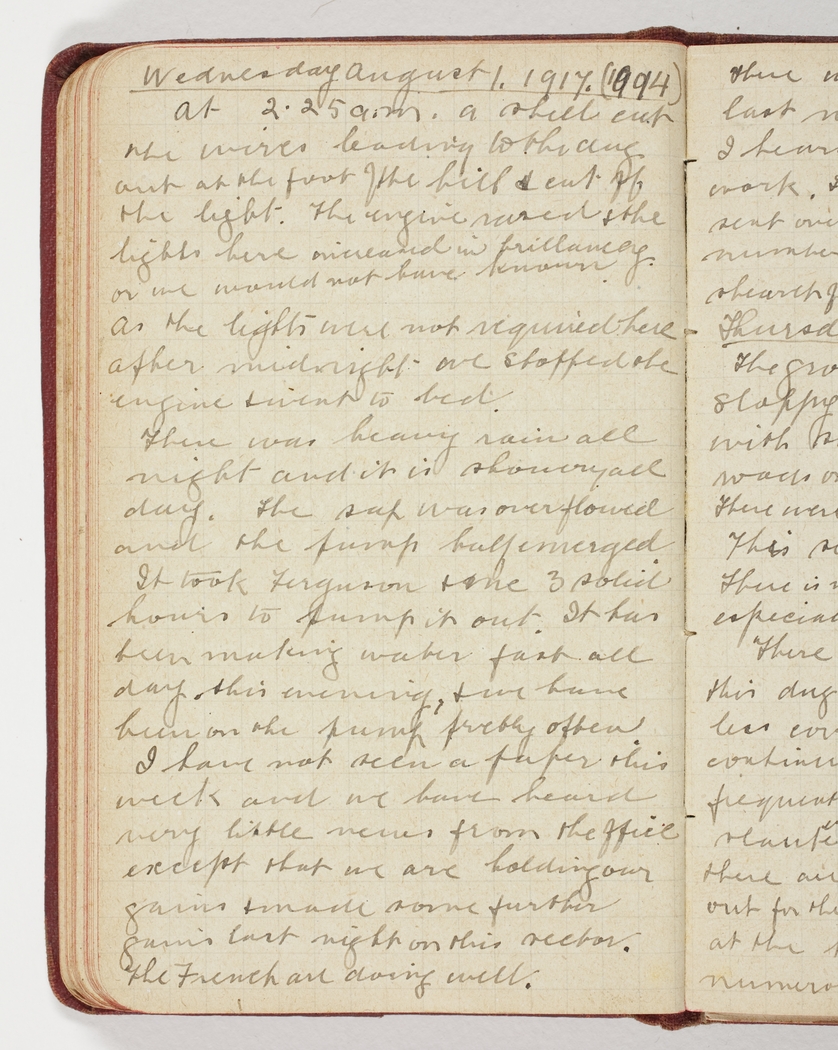 Wednesday August 1. 1917. (1094)
At 2.25 a.m. a shell cut
the wires leading to the dug
out at the foot of the hill & cut off
the light. The engine raced & the
lights here increased in brillancy
or we would not have known.
As the lights were not required here
after midnight we stopped the
engine & went to bed.
There was heavy rain all
night and it is showery all
day. The sap was overflowed
and the pump half emerged
It took Ferguson & me 3 solid
hours to pump it out. It has
been making water fast all
day. this evening, & we have
been on the pump pretty often
I have not seen a paper this
week and we have heard
very little news from the office
except that we are holding our
gains & made some further
gains last night on this sector.
The French are doing well.
there
last
I hear
work.
sent
number
Thursd
The
sloppy
with
There were
This
There is
especial
"There
this dug
less
continu
frequent
there
out for the
at the
numero